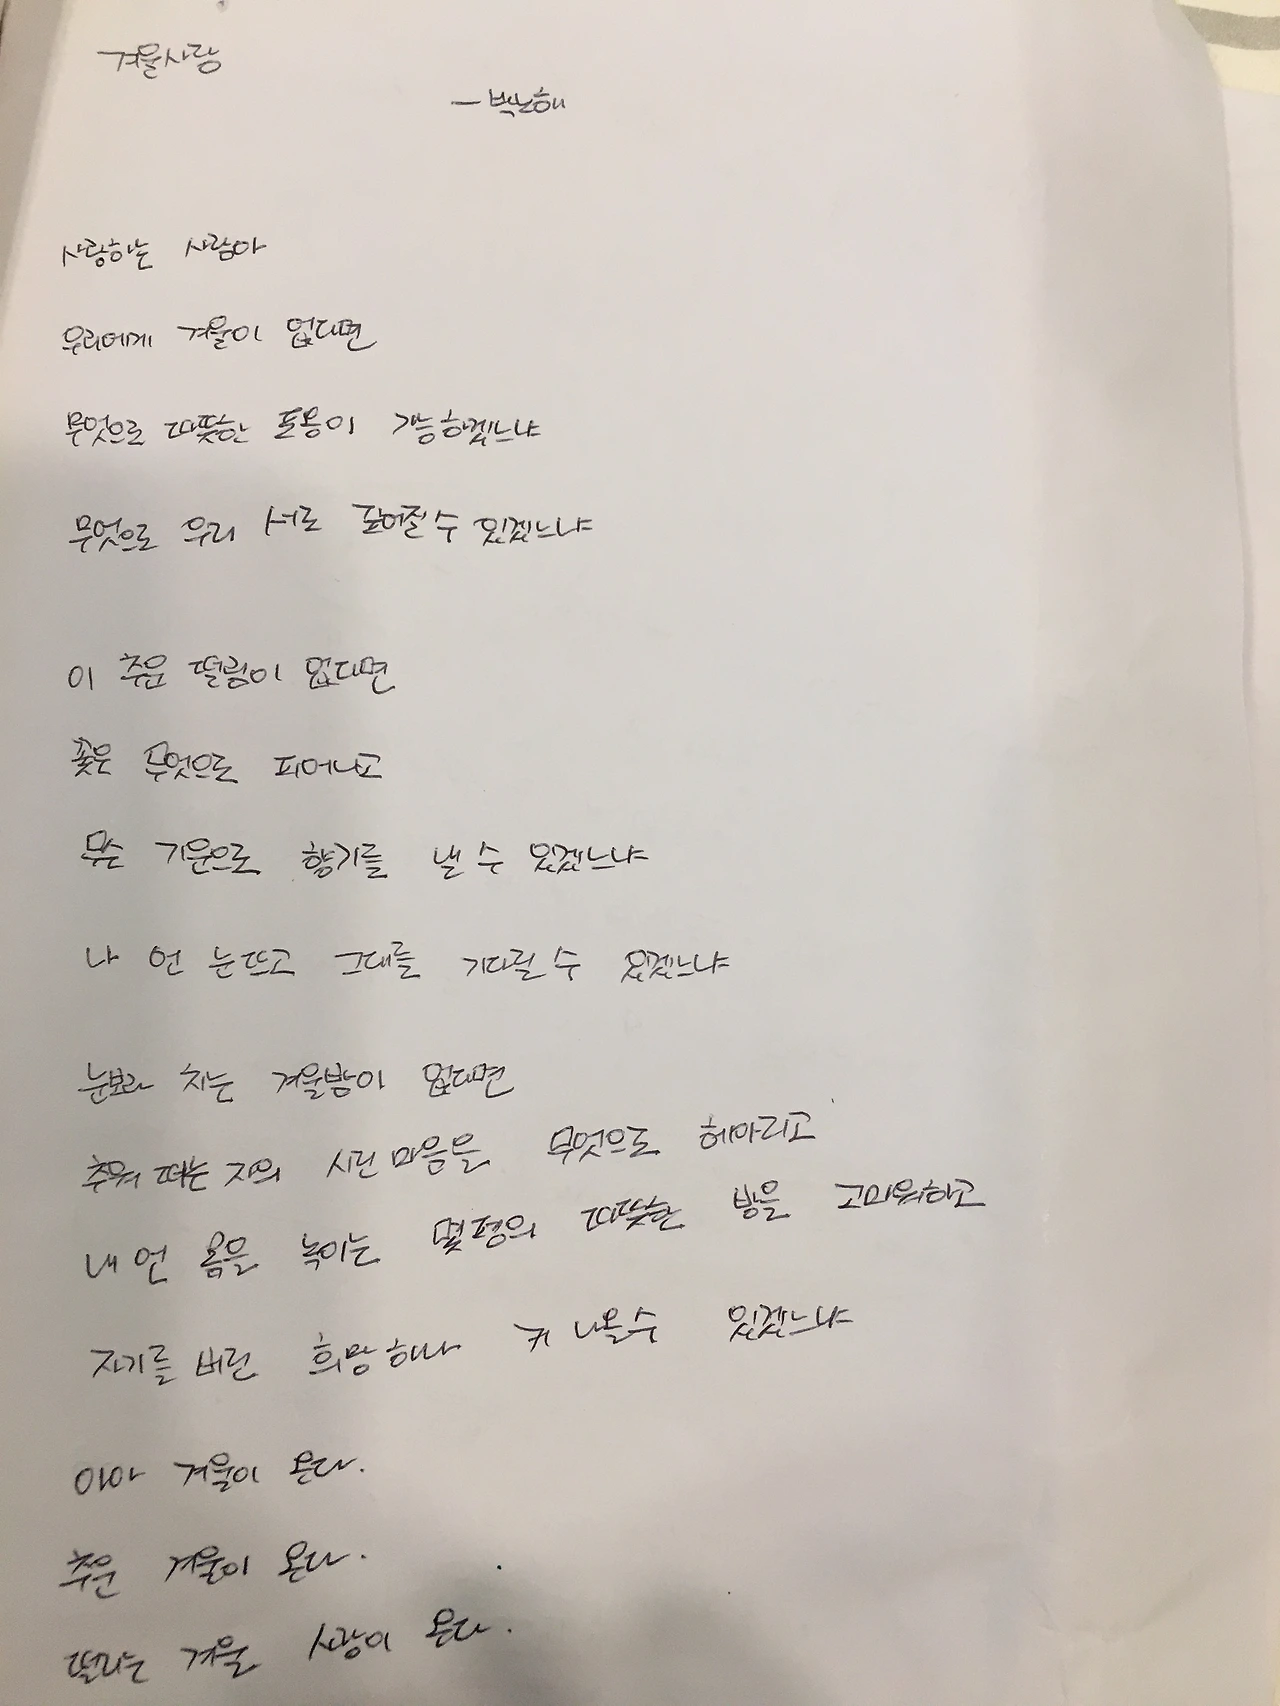 겨울사랑
- 박노해
사랑하는 사람아
우리에게 겨울이 없다면
무엇으로 따뜻한 포옹이 가능하겠느냐
무엇으로 우리 서로 깊어질 수 있겠느냐
이 추운 떨림이 없다면
꽃은 무엇으로 피어나고
무슨 기운으로 향기를 낼 수 있겠느냐
나 언 눈뜨고 그대를 기다릴 수 있겠느냐
눈보라 치는 겨울밤이 없다면
추워 떠는 자의 시린 마음을 무엇으로 헤아리고
내 언 몸을 녹이는 몇 평의 따뜻한 방을 고마워하고
자기를 버린 희망 하나 커 나올 수 있겠느냐
아아 겨울이 온다.
추운 겨울이 온다.
떨리는 겨울 사랑이 온다.